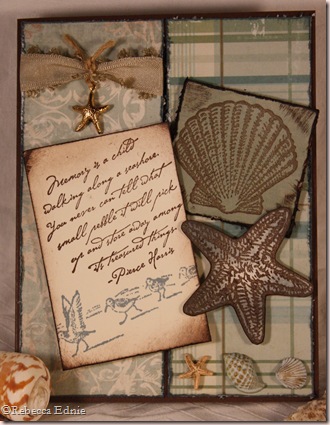 Memory is a child
walking along a seashore.
You never can tell what
small pebble it will pick
up and store away among
its treasured things.
-Pierce Harris
©Rebecca Ednie